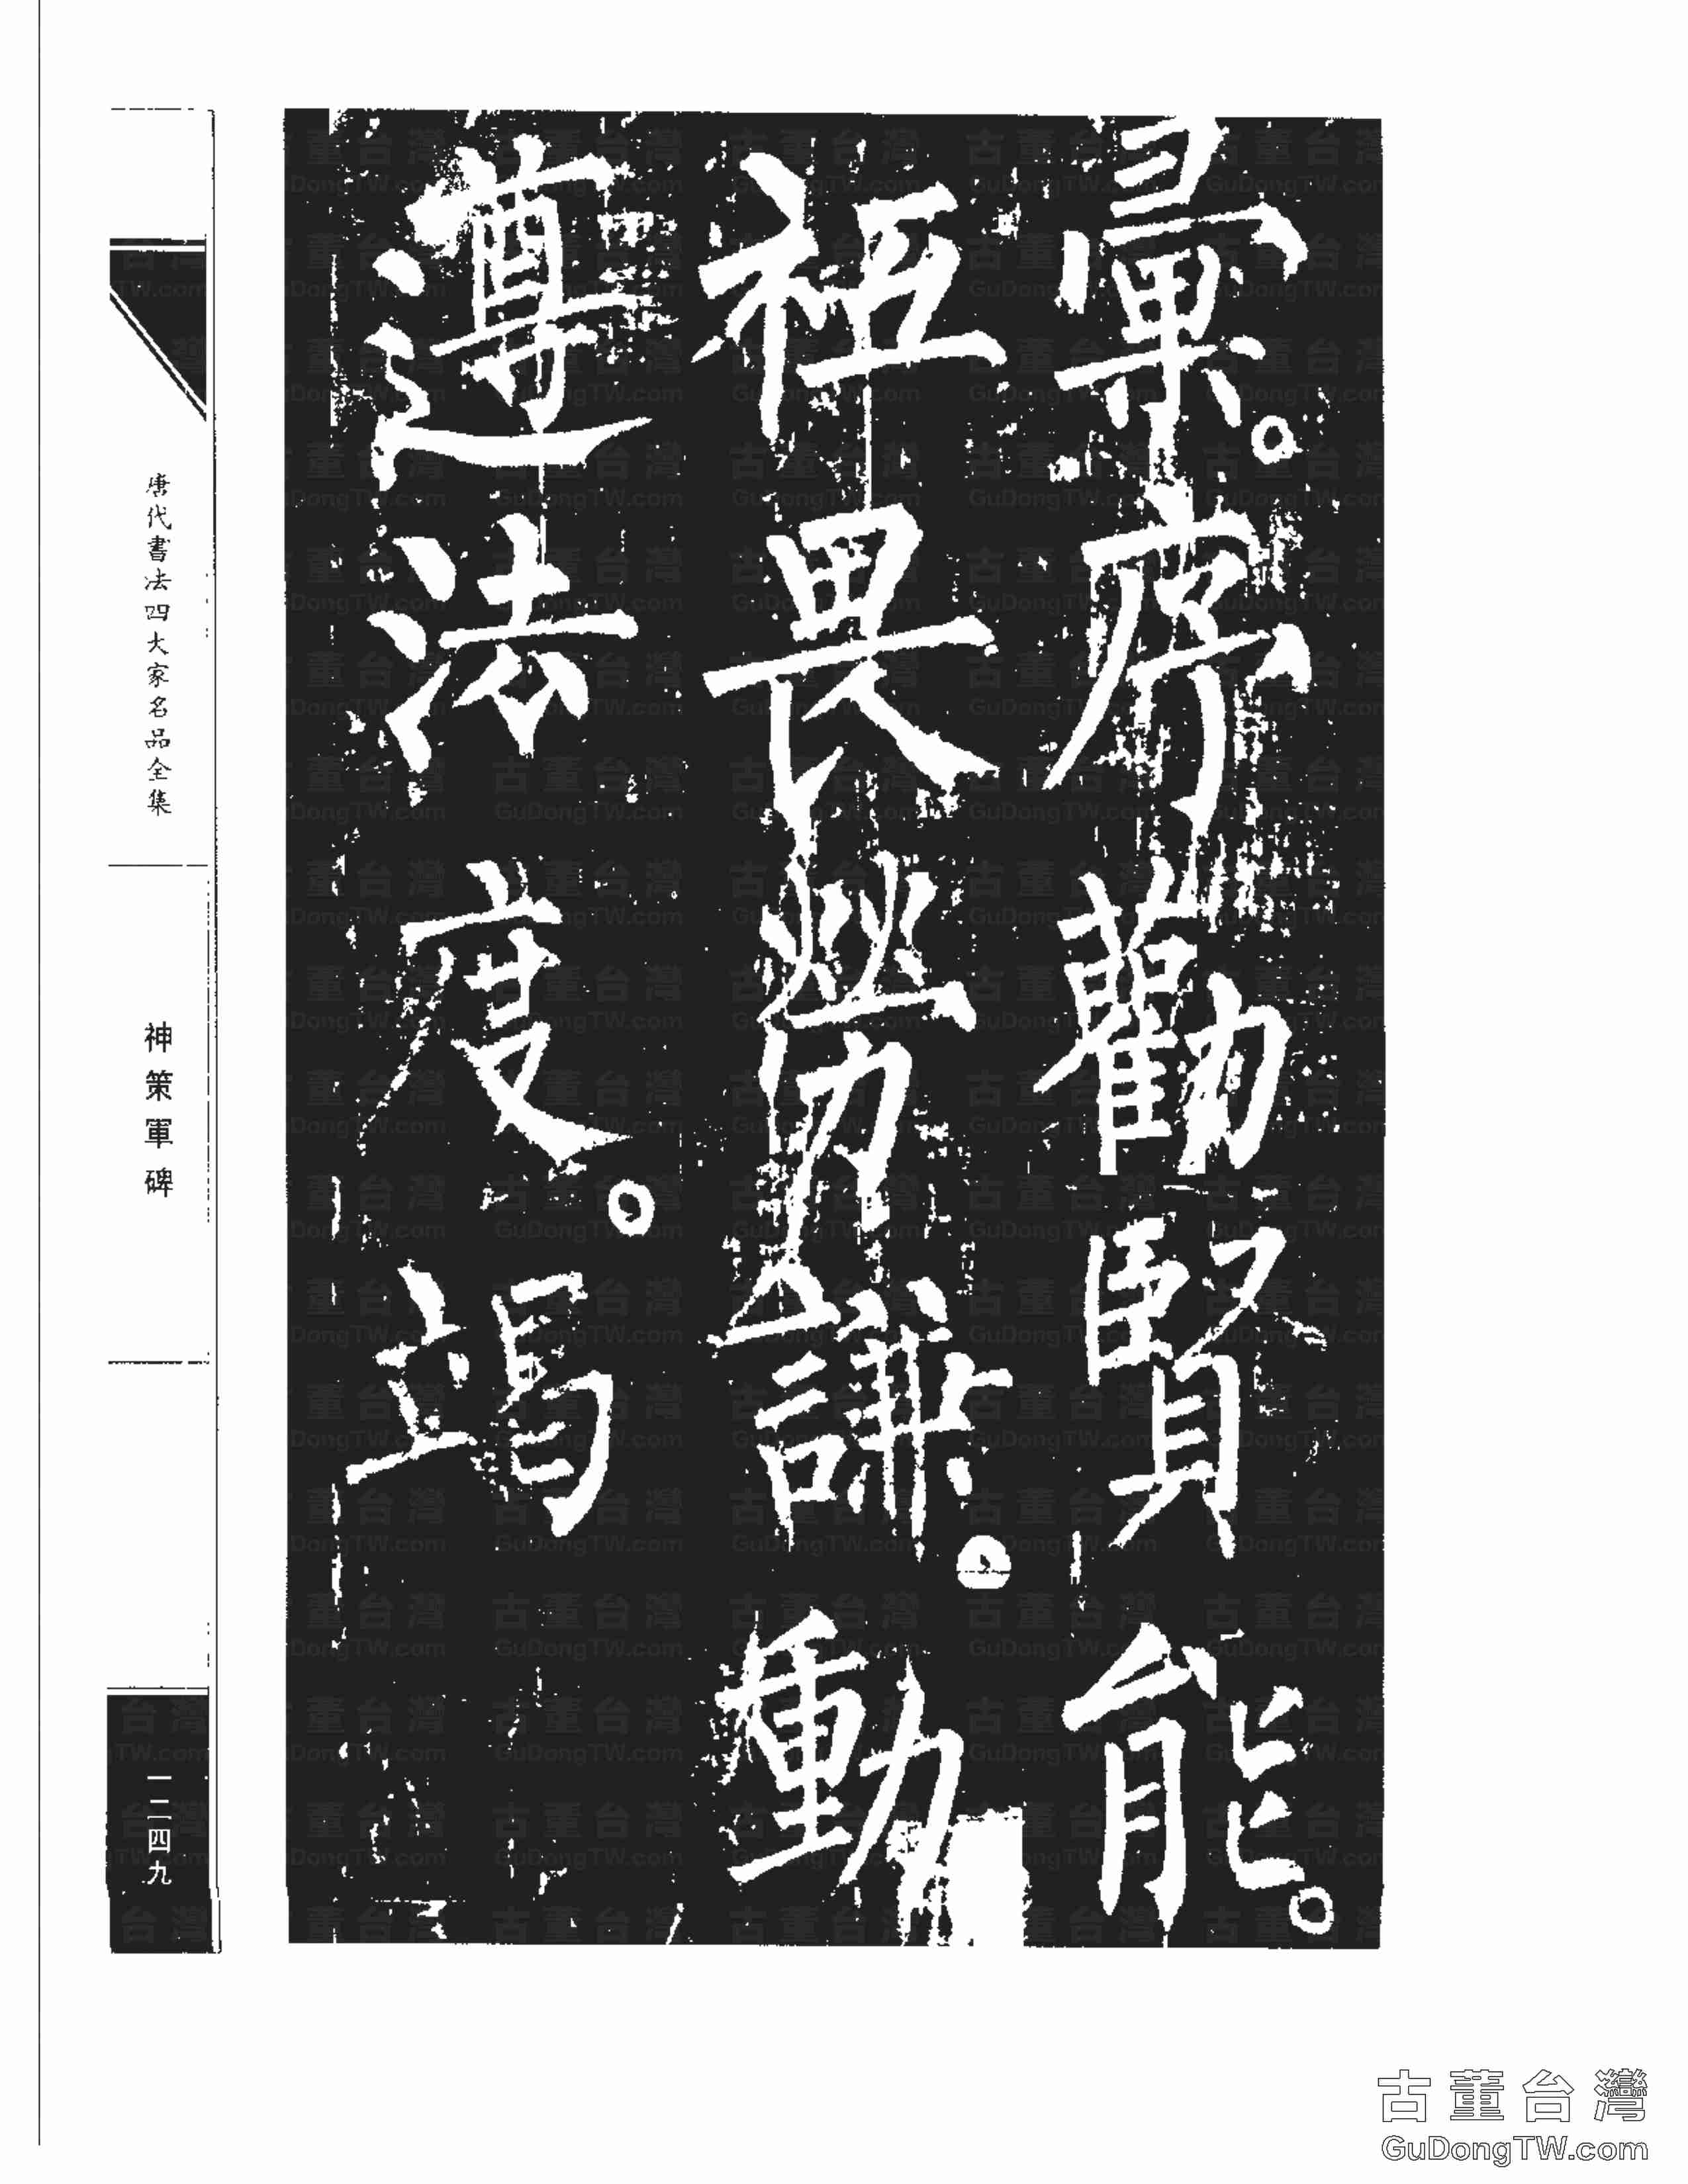 彙。序勸賢能。
祗畏勞謙。動
遵法度。竭
唐代書法四大家名品全集
神策軍碑
一二四九
古董台灣
GuDongTW.com